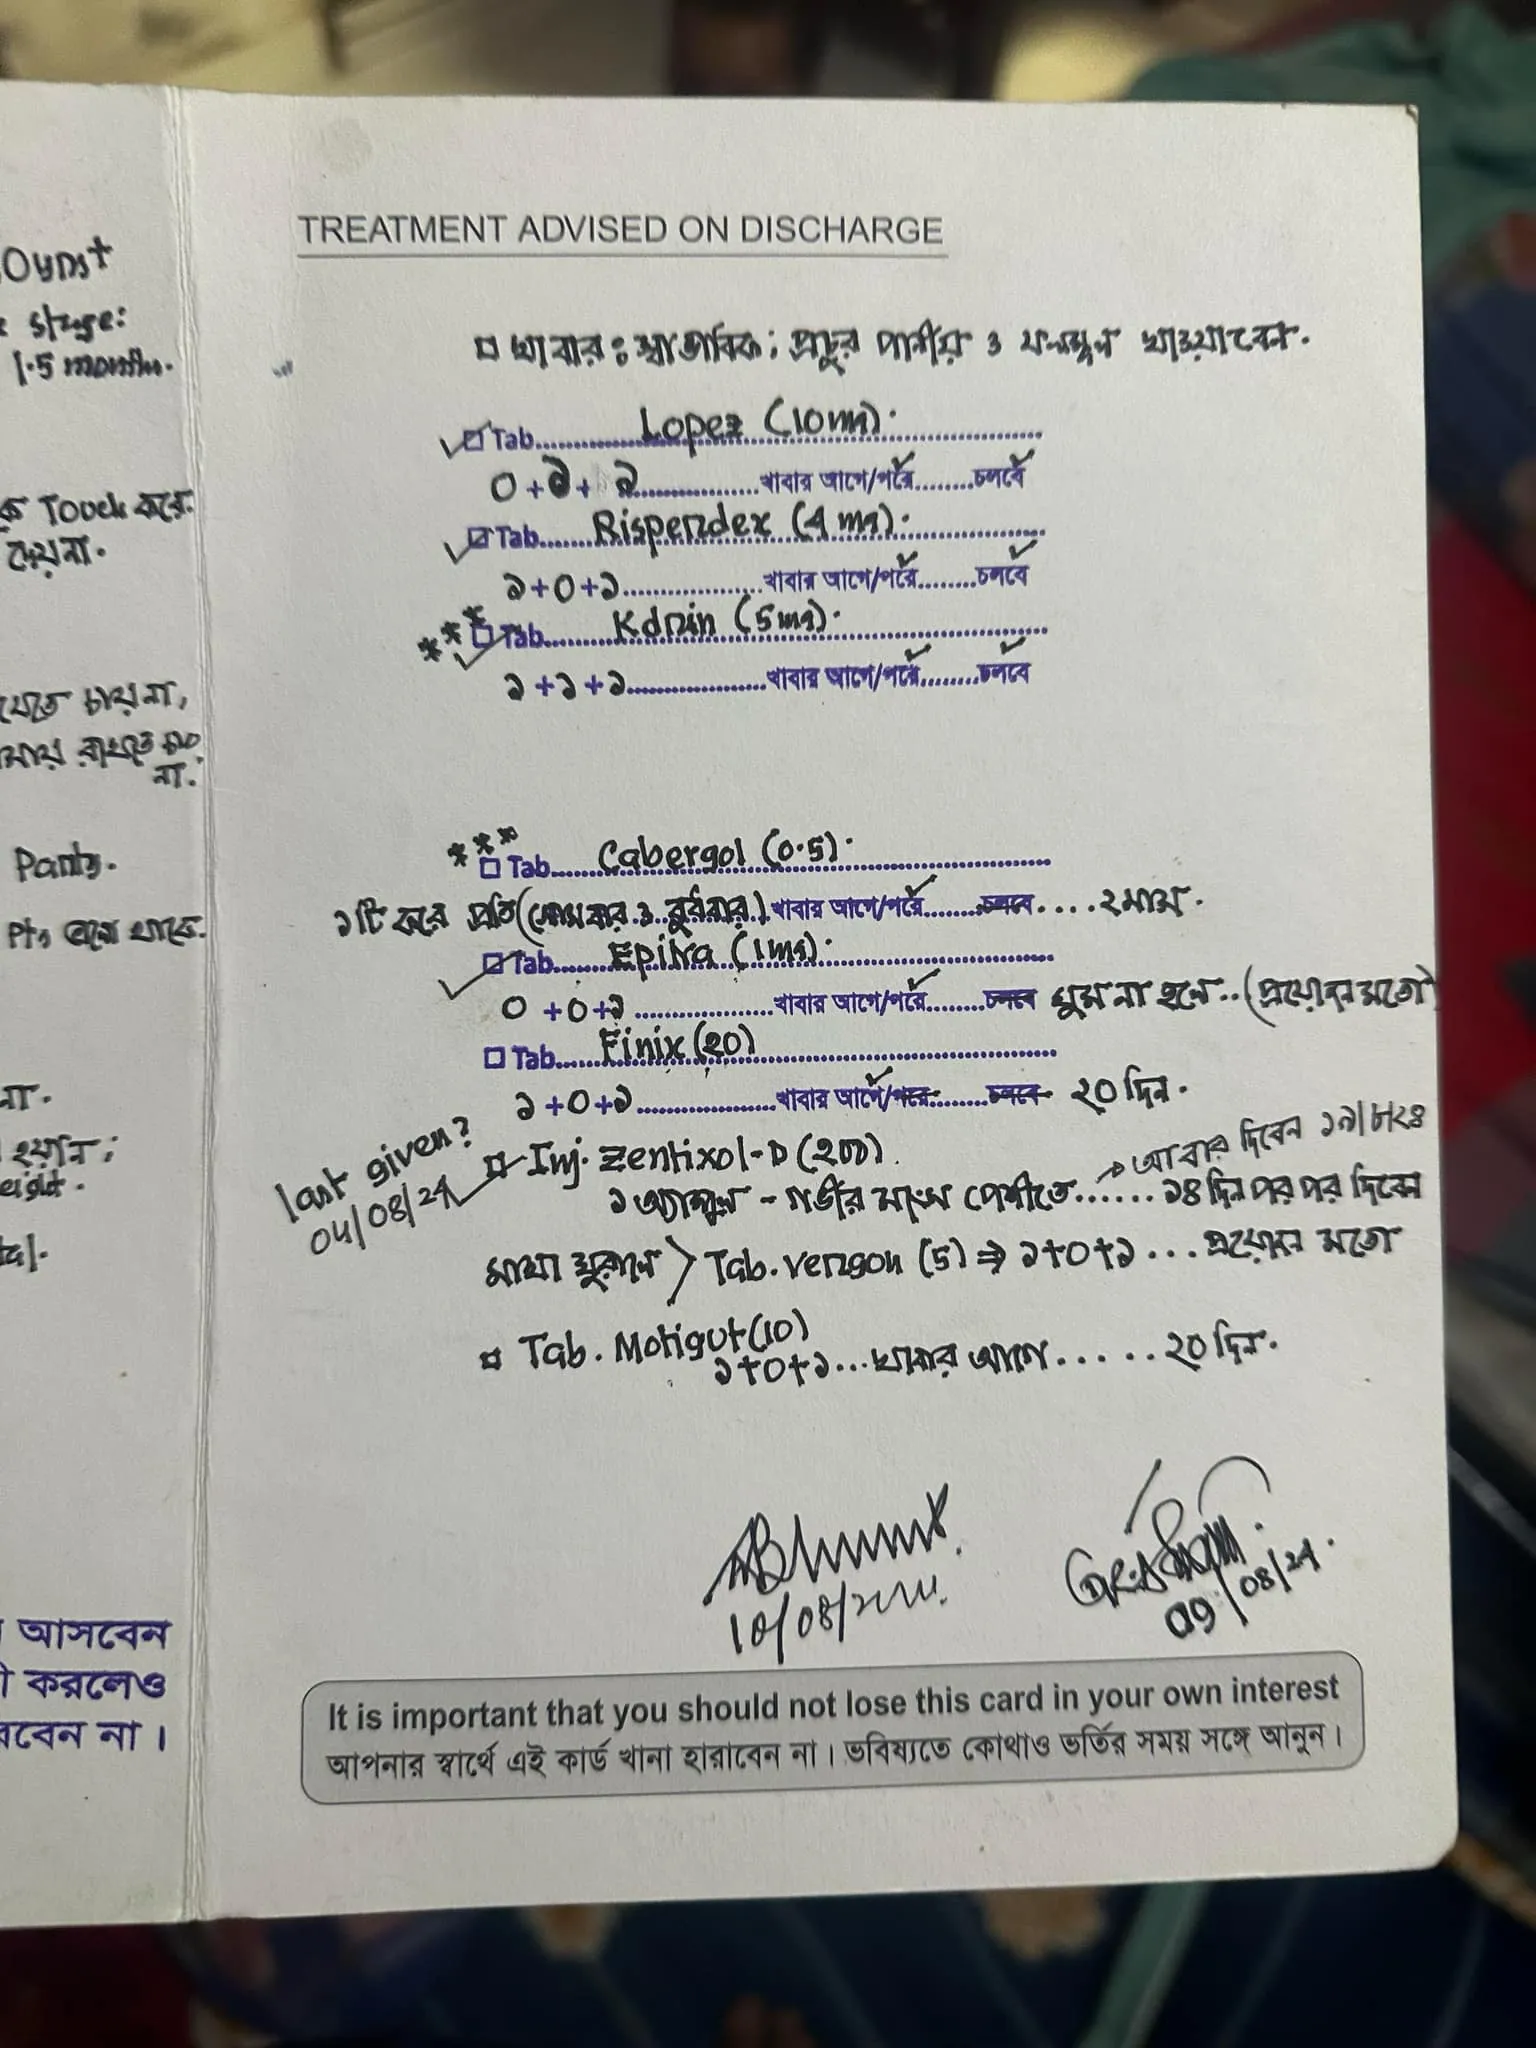 Oyrs+
stage:
1.5 month.
Touch করে
দেয়না.
চায়না,
না.
Panty.
না.
আসবেন
করলেও
না।
TREATMENT ADVISED ON DISCHARGE
খাবার: স্বাভাবিক; প্রচুর পানীয় ও ফলমূল খাওয়াবেন.
Tab. Lopez (10mg).
০+১+১ খাবার আগে/পরে চলবে
Tab. Rispendex (4mg).
১+০+১ খাবার আগে/পরে চলবে
*** Tab. Kdrin (5mg).
১+১+১ খাবার আগে/পরে চলবে
*** Tab. Cabergol (0.5).
১টি করে প্রতি (সোমবার ও বুধবার) খাবার আগে/পরে চলবে .... ২মাস.
Tab. Epitra (1mg).
০+০+১ খাবার আগে/পরে চলবে ঘুম না হলে.. (প্রয়োজন মতো)
Tab. Finix (20)
১+০+১ খাবার আগে/পরে চলবে ২০ দিন.
last given?
04/08/24
Inj. Zentixol-D (200).
আবার দিবেন ১৯/৮/২৪
১ অ্যাম্পুল - গভীর মাংস পেশীতে...... ১৪ দিন পর পর দিবেন
মাথা ঘুরালে > Tab. Vergon (5) ⇒ ১+০+১... প্রয়োজন মতো
Tab. Motigut (10)
১+০+১... খাবার আগে..... ২০ দিন.
10/08/
09/08/24.
It is important that you should not lose this card in your own interest
আপনার স্বার্থে এই কার্ড খানা হারাবেন না। ভবিষ্যতে কোথাও ভর্তির সময় সঙ্গে আনুন।